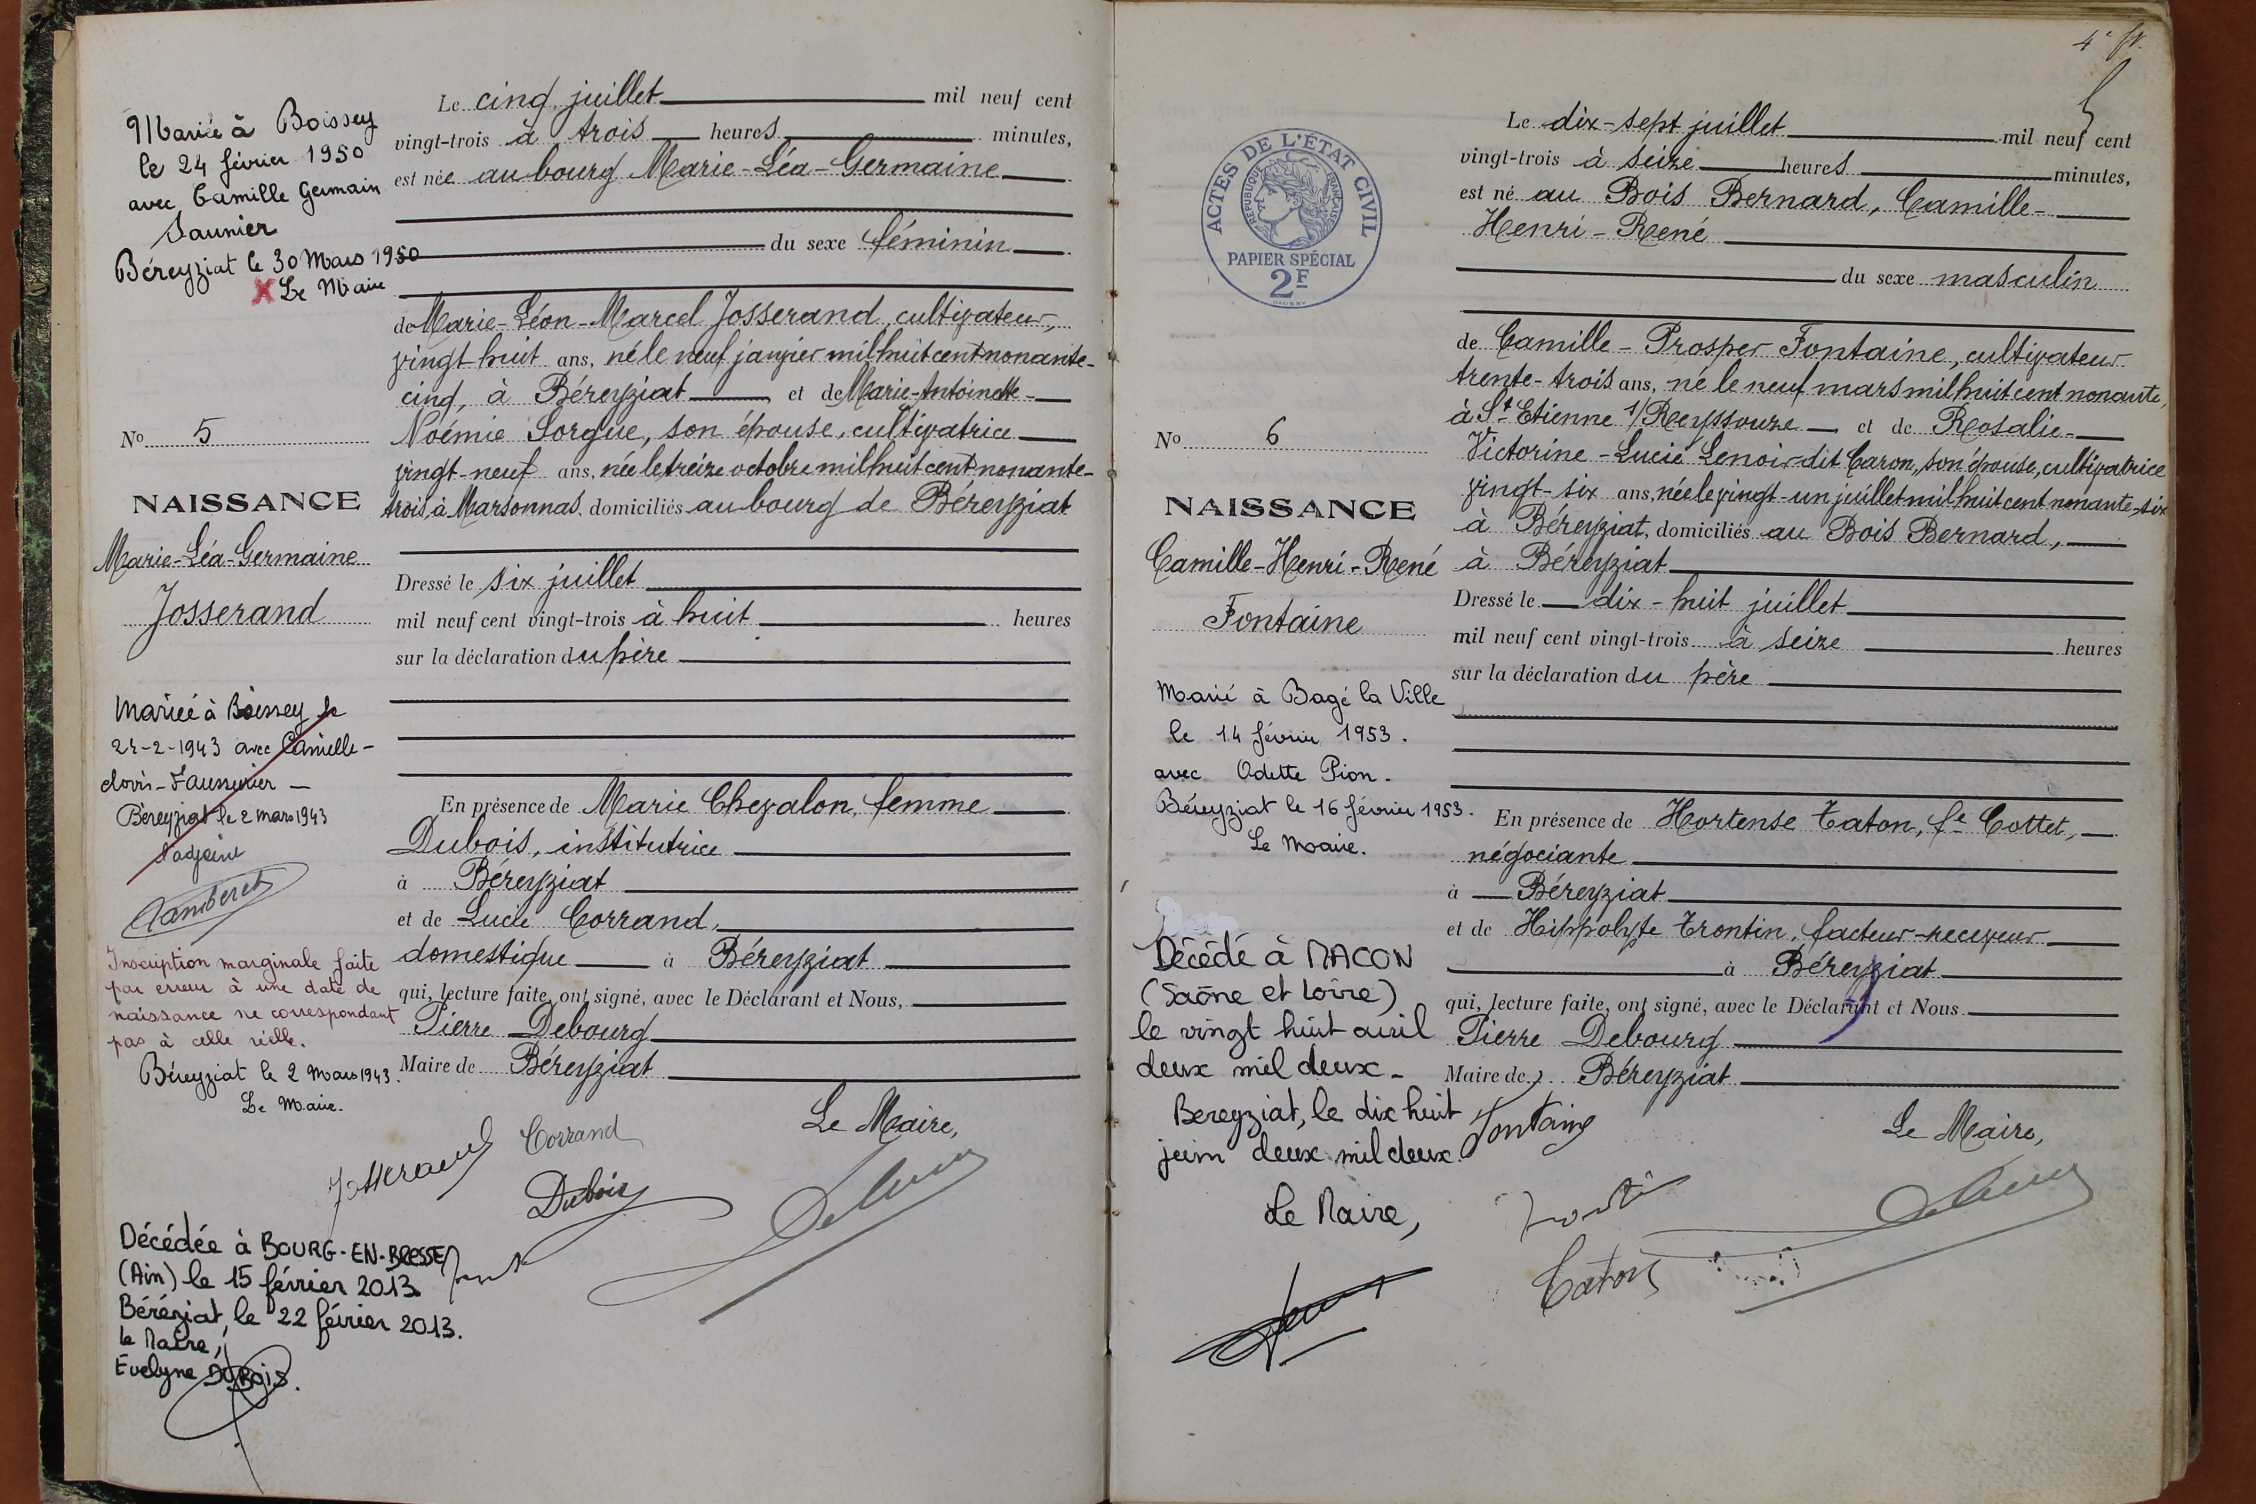 Mariée à Boissey
le 24 février 1950
avec Camille Germain
Saunier
Béreyziat le 30 Mars 1950
X Le Maire
No 5
NAISSANCE
Marie-Léa-Germaine
Josserand
Mariée à Boissey le
-2-1943 avec Camille-
clovis-
Béreyziat le 2 mars 1943
l'adjoint
Inscription marginale faite
par erreur à une date de
naissance ne correspondant
pas à celle réelle.
Béreyziat le 2 Mars 1943.
Le Maire.
Le cinq juillet mil neuf cent
vingt-trois à trois heures minutes,
est née au bourg Marie-Léa-Germaine
du sexe féminin
de Marie-Léon-Marcel Josserand, cultivateur,
vingt-huit ans, né le neuf janvier mil huit cent nonante-
cinq, à Béreyziat et de Marie-Antoinette-
Noémie Sorgue, son épouse, cultivatrice
vingt-neuf ans, née le treize octobre mil huit cent nonante-
trois à Marsonnas, domiciliés au bourg de Béreyziat
Dressé le six juillet
mil neuf cent vingt-trois à huit heures
sur la déclaration du père
En présence de Marie Chevalon, femme
Dubois, institutrice
à Béreyziat
et de Lucie Corrand,
domestique à Béreyziat
qui, lecture faite, ont signé, avec le Déclarant et Nous,
Pierre Debourg
Maire de Béreyziat
Le Maire,
Josserand Corrand
Dubois
Décédée à BOURG-EN-BRESSE
(Ain) le 15 février 2013
Béréziat, le 22 février 2013.
le Maire,
Evelyne DUBOIS.
4e ft.
ACTES DE L'ÉTAT CIVIL
RÉPUBLIQUE FRANÇAISE
PAPIER SPÉCIAL
2F
No 6
NAISSANCE
Camille-Henri-René
Fontaine
Marié à Bagé la Ville
le 14 février 1953.
avec Odette Pion.
Béreyziat le 16 février 1953.
Le Maire.
Décédé à MACON
(Saône et Loire)
le vingt huit avril
deux mil deux-
Bereyziat, le dix huit
juin deux mil deux.
Le Maire,
Le dix-sept juillet mil neuf cent
vingt-trois à seize heures minutes,
est né au Bois Bernard, Camille-
Henri-René
du sexe masculin
de Camille-Prosper Fontaine, cultivateur
trente-trois ans, né le neuf mars mil huit cent nonante,
à St Etienne s/Reyssouze et de Rosalie-
Victorine-Lucie Lenoir dit Caron, son épouse, cultivatrice
vingt-six ans, née le vingt-un juillet mil huit cent nonante-six
à Béreyziat, domiciliés au Bois Bernard,
à Béreyziat
Dressé le dix-huit juillet
mil neuf cent vingt-trois à seize heures
sur la déclaration du père
En présence de Hortense Caton, fe Cottet,
négociante
à Béreyziat
et de Hippolyte Trontin, facteur-receveur
à Béreyziat
qui, lecture faite, ont signé, avec le Déclarant et Nous
Pierre Debourg
Maire de Béreyziat
Fontaine
Le Maire,
Caton